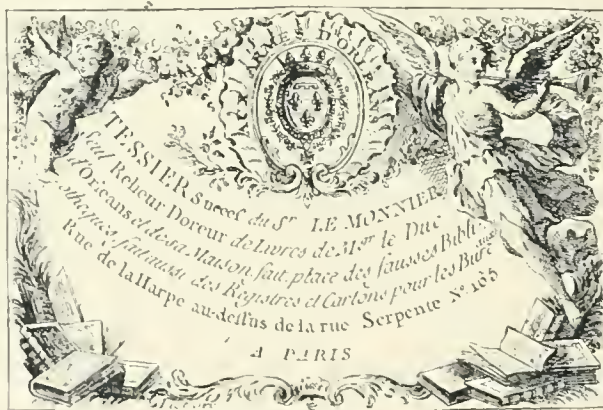 AUX ARMES D'ORLE
TESSIER Succes.ʳ du Sʳ LE MONNIER
seul Relieur Doreur de Livres de Mgr le Duc
d'Orleans et de sa Maison, fait, place des fausses Bibli-
otheques, fait aussi des Registres et Cartons pour les Bure aux
Rue de la Harpe au-dessus de la rue Serpente Nº. 165
A PARIS